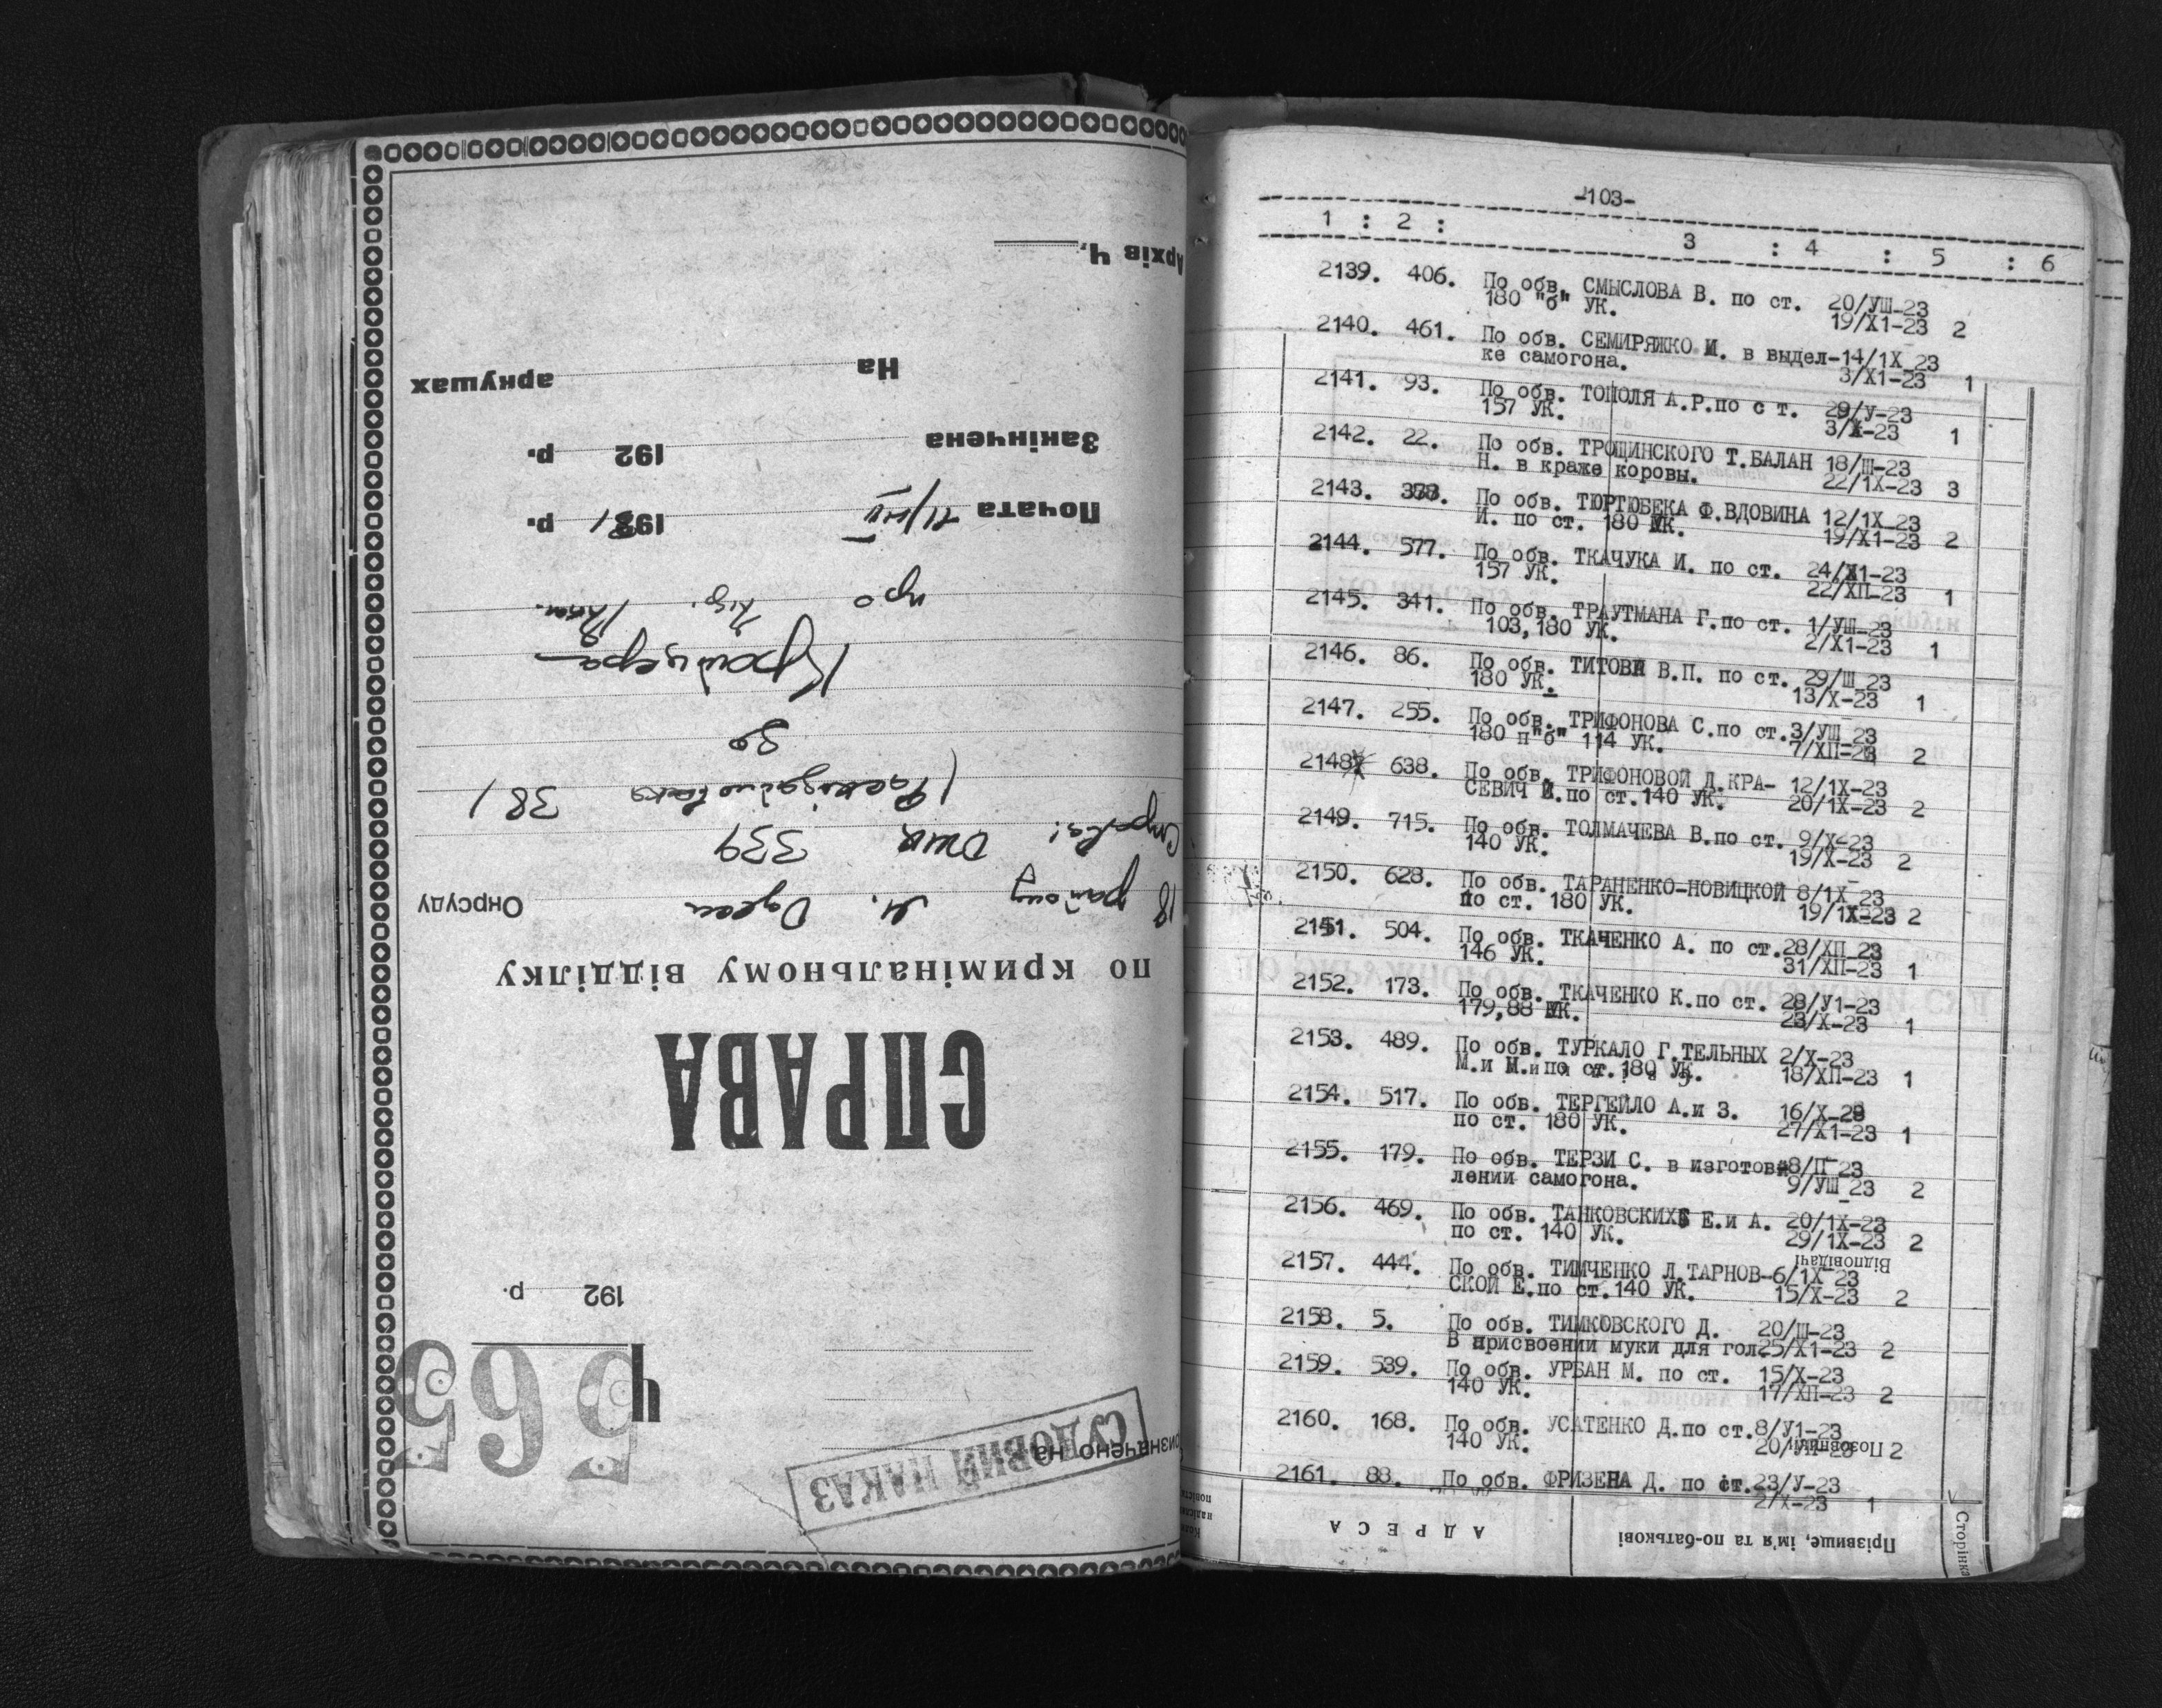 Ч 565
192 р.
СУДОВИЙ НАКАЗ
Призначено на
СПРАВА
по кримінальному відділку
18 району м. Одеси Окрсуду
339 381
до
Почата 192 р.
Закінчена 192 р.
На аркушах
Архів Ч.
-103-
1 : 2 : 3 : 4 : 5 : 6
2139. 406. По обв. СМЫСЛОВА В. по ст. 20/УШ-23
180 "б" УК. 19/Х1-23 2
2140. 461. По обв. СЕМИРЯЖКО И. в выдел-14/1Х_23
ке самогона. 3/Х1-23 1
2141. 93. По обв. ТОПОЛЯ А.Р.по с т. 29/У-23
157 УК. 3/Х-23 1
2142. 22. По обв. ТРОЩИНСКОГО Т.БАЛАН 18/Ш-23
Н. в краже коровы. 22/1Х-23 3
2143. По обв. ТЮРТЮБЕКА Ф.ВДОВИНА 12/1Х_23
И. по ст. 180 УК. 19/Х1-23 2
2144. 577. По обв. ТКАЧУКА И. по ст. 24/Х1-23
157 УК. 22/ХП-23 1
2145. 341. По обв. ТРАУТМАНА Г.по ст. 1/УШ_23
103,180 УК. 2/Х1-23 1
2146. 86. По обв. ТИТОВА В.П. по ст. 29/Ш_23
180 УК. 13/Х-23 1
2147. 255. По обв. ТРИФОНОВА С.по ст.3/УШ_23
180 п"б" 114 УК. 7/ХП-23 2
2148. 638. По обв. ТРИФОНОВОЙ Д.КРА- 12/1Х-23
СЕВИЧ И.по ст.140 УК. 20/1Х-23 2
2149. 715. По обв. ТОЛМАЧЕВА В.по ст. 9/Х-23
140 УК. 19/Х-23 2
2150. 628. По обв. ТАРАНЕНКО-НОВИЦКОЙ 8/1Х_23
по ст. 180 УК. 19/1Х-23 2
2151. 504. По обв. ТКАЧЕНКО А. по ст.28/ХП_23
146 УК. 31/ХП-23 1
2152. 173. По обв. ТКАЧЕНКО К.по ст. 28/У1-23
179,88 УК. 23/Х-23 1
2153. 489. По обв. ТУРКАЛО Г.ТЕЛЬНЫХ 2/Х-23
М.и М.и по ст.180 УК. 18/ХП-23 1
2154. 517. По обв. ТЕРГЕЙЛО А.и З. 16/Х_23
по ст. 180 УК. 27/Х1-23 1
2155. 179. По обв. ТЕРЗИ С. в изготов-8/П_23
лении самогона. 9/УШ_23 2
2156. 469. По обв. ТАНКОВСКИХ Е.и А. 20/1Х-23
по ст. 140 УК. 29/1Х-23 2
Відповідачі
2157. 444. По обв. ТИМЧЕНКО Л.ТАРНОВ-6/1Х_23
СКОЙ Е.по ст.140 УК. 15/Х-23 2
2158. 5. По обв. ТИМКОВСКОГО Д. 20/Ш-23
В присвоении муки для гол25/Х1-23 2
2159. 539. По обв. УРБАН М. по ст. 15/Х-23
140 УК. 17/ХП-23 2
2160. 168. По обв. УСАТЕНКО Д.по ст.8/У1-23
140 УК. 2
2161. 88. По обв. ФРИЗЕНА Д. по ст.23/У-23
2/Х-23 1
Прізвище, ім'я та по-батькові
АДРЕСА
Сторінка